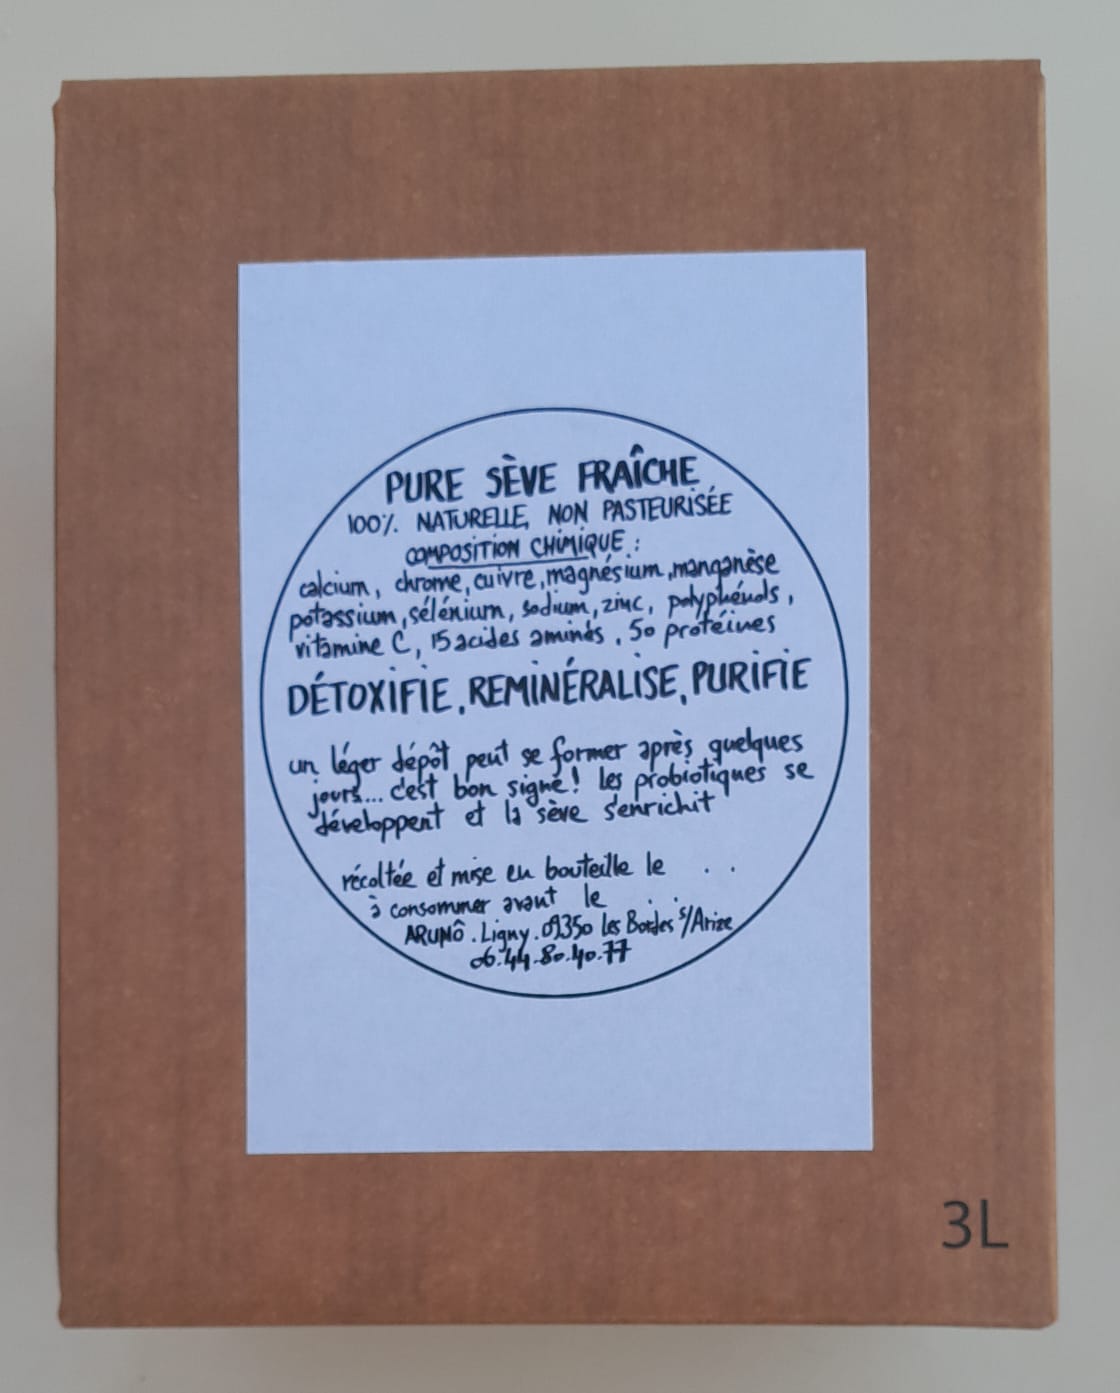 PURE SÈVE FRAÎCHE
100% NATURELLE, NON PASTEURISÉE
COMPOSITION CHIMIQUE :
calcium, chrome, cuivre, magnésium, manganèse
potassium, sélénium, sodium, zinc, polyphénols,
vitamine C, 15 acides aminés, 50 protéines
DÉTOXIFIE, REMINÉRALISE, PURIFIE
un léger dépôt peut se former après quelques
jours... c'est bon signe! les probiotiques se
développent et la sève s'enrichit
récoltée et mise en bouteille le . .
à consommer avant le . .
ARUMÔ. Ligny. 09350 les Bordes s/Arize
06.44.80.40.77
3L